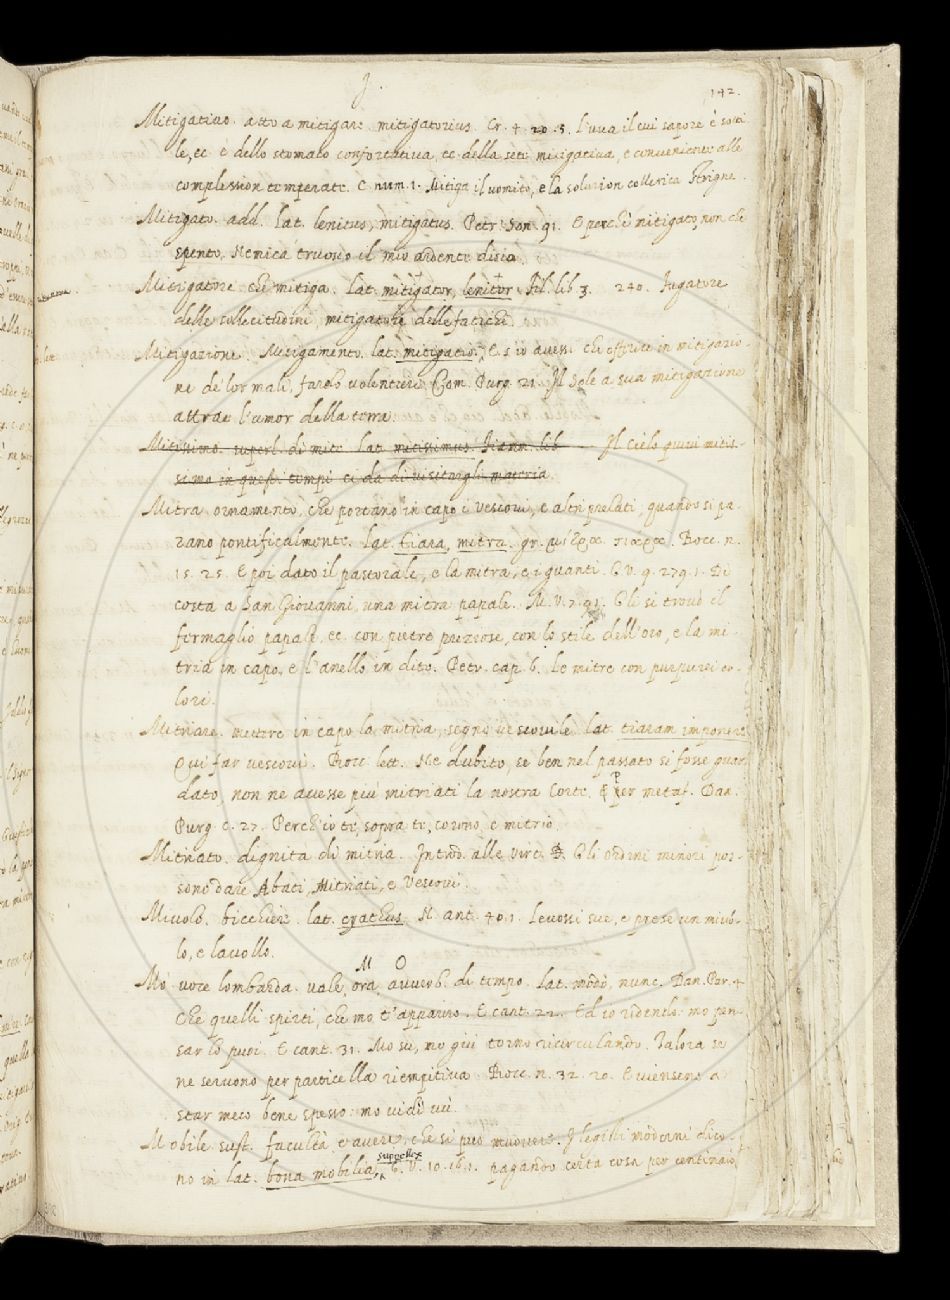 I.
142.
Mitigativo. atto a mitigare mitigatorius. Cr. 4. 20. 5. l'uva il cui sapore è sotti
le, ec. è dello stomaco confortativa, ec. della sete mitigativa, e conveniente alle
complession temperate. E num. 1. Mitiga il vomito, e la soluzion collerica strigne.
Mitigato. add. lat. lenitus, mitigatus. Petr. Son. 91. E perchè mitigato, non che
spento, Nemica truovo il mio ardente disia.
Mitigatore che mitiga. lat. mitigator, lenitor. Fil. lib. 3. 240. fugatore
delle sollecitudini mitigatore delle fatiche.
Mitigazione. Mitigamento. lat. mitigatio. E s'io avessi che offrire in mitigazio-
ne de' lor mali, farelo volentieri. Com. Purg. 21. Il Sole a sua mitigazione
attrae l'umor della terra.
Mitissimo. superl. di mite. lat. mitissimus. lib. Il Cielo quivi mitis-
simo in questi tempi ci da di visitargli materia.
Mitra. ornamento, che portano in capo i Vescovi, e altri prelati, quando si pa-
rano pontificalmente. lat. tiara, mitra. gr. μίτρα τιάρα. Bocc. n.
15. 25. E poi dato il pastorale, e la mitra, e i guanti. G. V. 9. 279. 1. Di
costa a San Giovanni, una mitra papale. M. V. 7. 91. Gli si trovò il
fermaglio papale, ec. con pietre preziose, con lo stile dell'oro, e la mi-
tria in capo, e l'anello in dito. Petr. cap. 6. Le mitre con purpurei co-
lori.
Mitriare. mettere in capo la mitria, segno vescovile lat. tiaram imponere
Qui far vescovi. Bocc. lett. Ne dubito, se ben nel passato si fosse guar
dato, non ne avesse piu mitriati la nostra Corte. E per metaf. Dan.
Purg. c. 27. Perch'io te, sopra te, corono, e mitrio.
Mitriato. dignita di mitria. Introd. alle virt. Gli ordini minori pos-
sono dare Abati, Mitriati, e Vescovi.
Miuolo. bicchiere. lat. cyathus. N. ant. 40. 1. Levossi sue, e prese un miuo-
lo, e lavollo.
M O
Mo. voce lombarda. vale, ora, avverb. di tempo. lat. modo, nunc. Dan. Par. 4
Che quelli spirti, che mo t'appariro. E cant. 22. Ed io ridendo: mo pen-
sar lo puoi. E cant. 31. Mo su, mo giu torno ricirculando. Talora se
ne servono per particella riempitiva Bocc. n. 32. 20. E viensene a
star meco bene spesso: mo vedi vu.
Mobile. sust. facultà, avere, che si puo muovere. I legisti moderni dico-
suppellex
no in lat. bona mobilia, G. V. 10. 16. 1. pagando certa cosa per centinaio